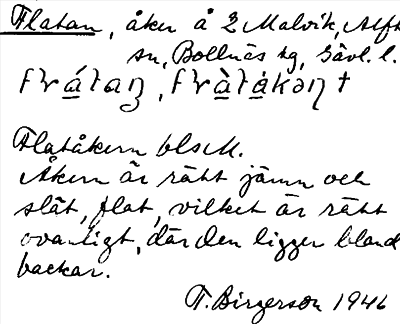 Flatan, åker å 2 Malvik, Alfta
sn, Bollnäs tg, Gävl. l.
Flatåkern bland M.
Åkern är rätt jämn och
slät, flat, vilket är rätt
ovanligt, där den ligger bland
backar.
T. Birgerson 1946